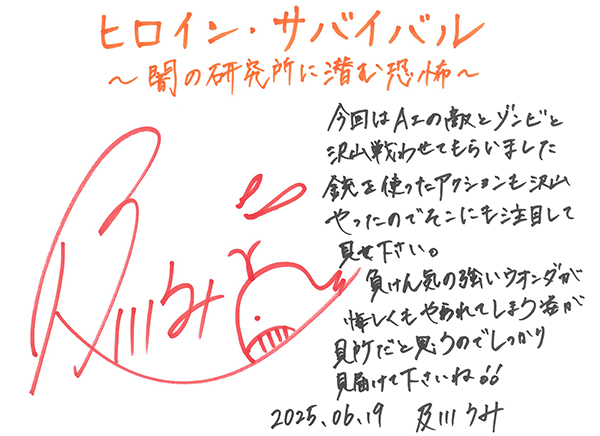 ヒロイン・サバイバル
～闇の研究所に潜む恐怖～
今回はAIの敵とゾンビと
沢山戦わせてもらいました
銃を使ったアクションも沢山
やったのでそこにも注目して
見せ下さい。
負けん気の強いウオンダが
悔しくもやられてしまう姿が
見所だと思うのでしっかり
見届けて下さいね!!
2025.06.19 及川うみ
及川うみ